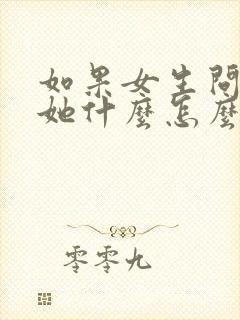 如果女生問
她什麼怎麼
零零九